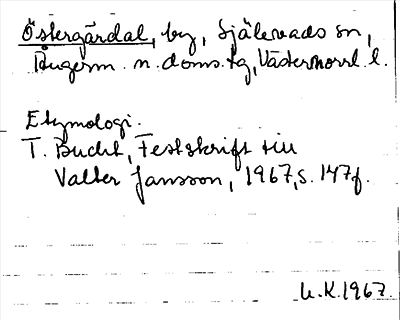 Östergärdal, by, Själevads sn,
Ångerm. n. doms. tg, Västernorrl. l.
Etymologi.
T. Bucht, Festskrift till
Valter Jansson, 1967, s. 147f.
U.K. 1967.